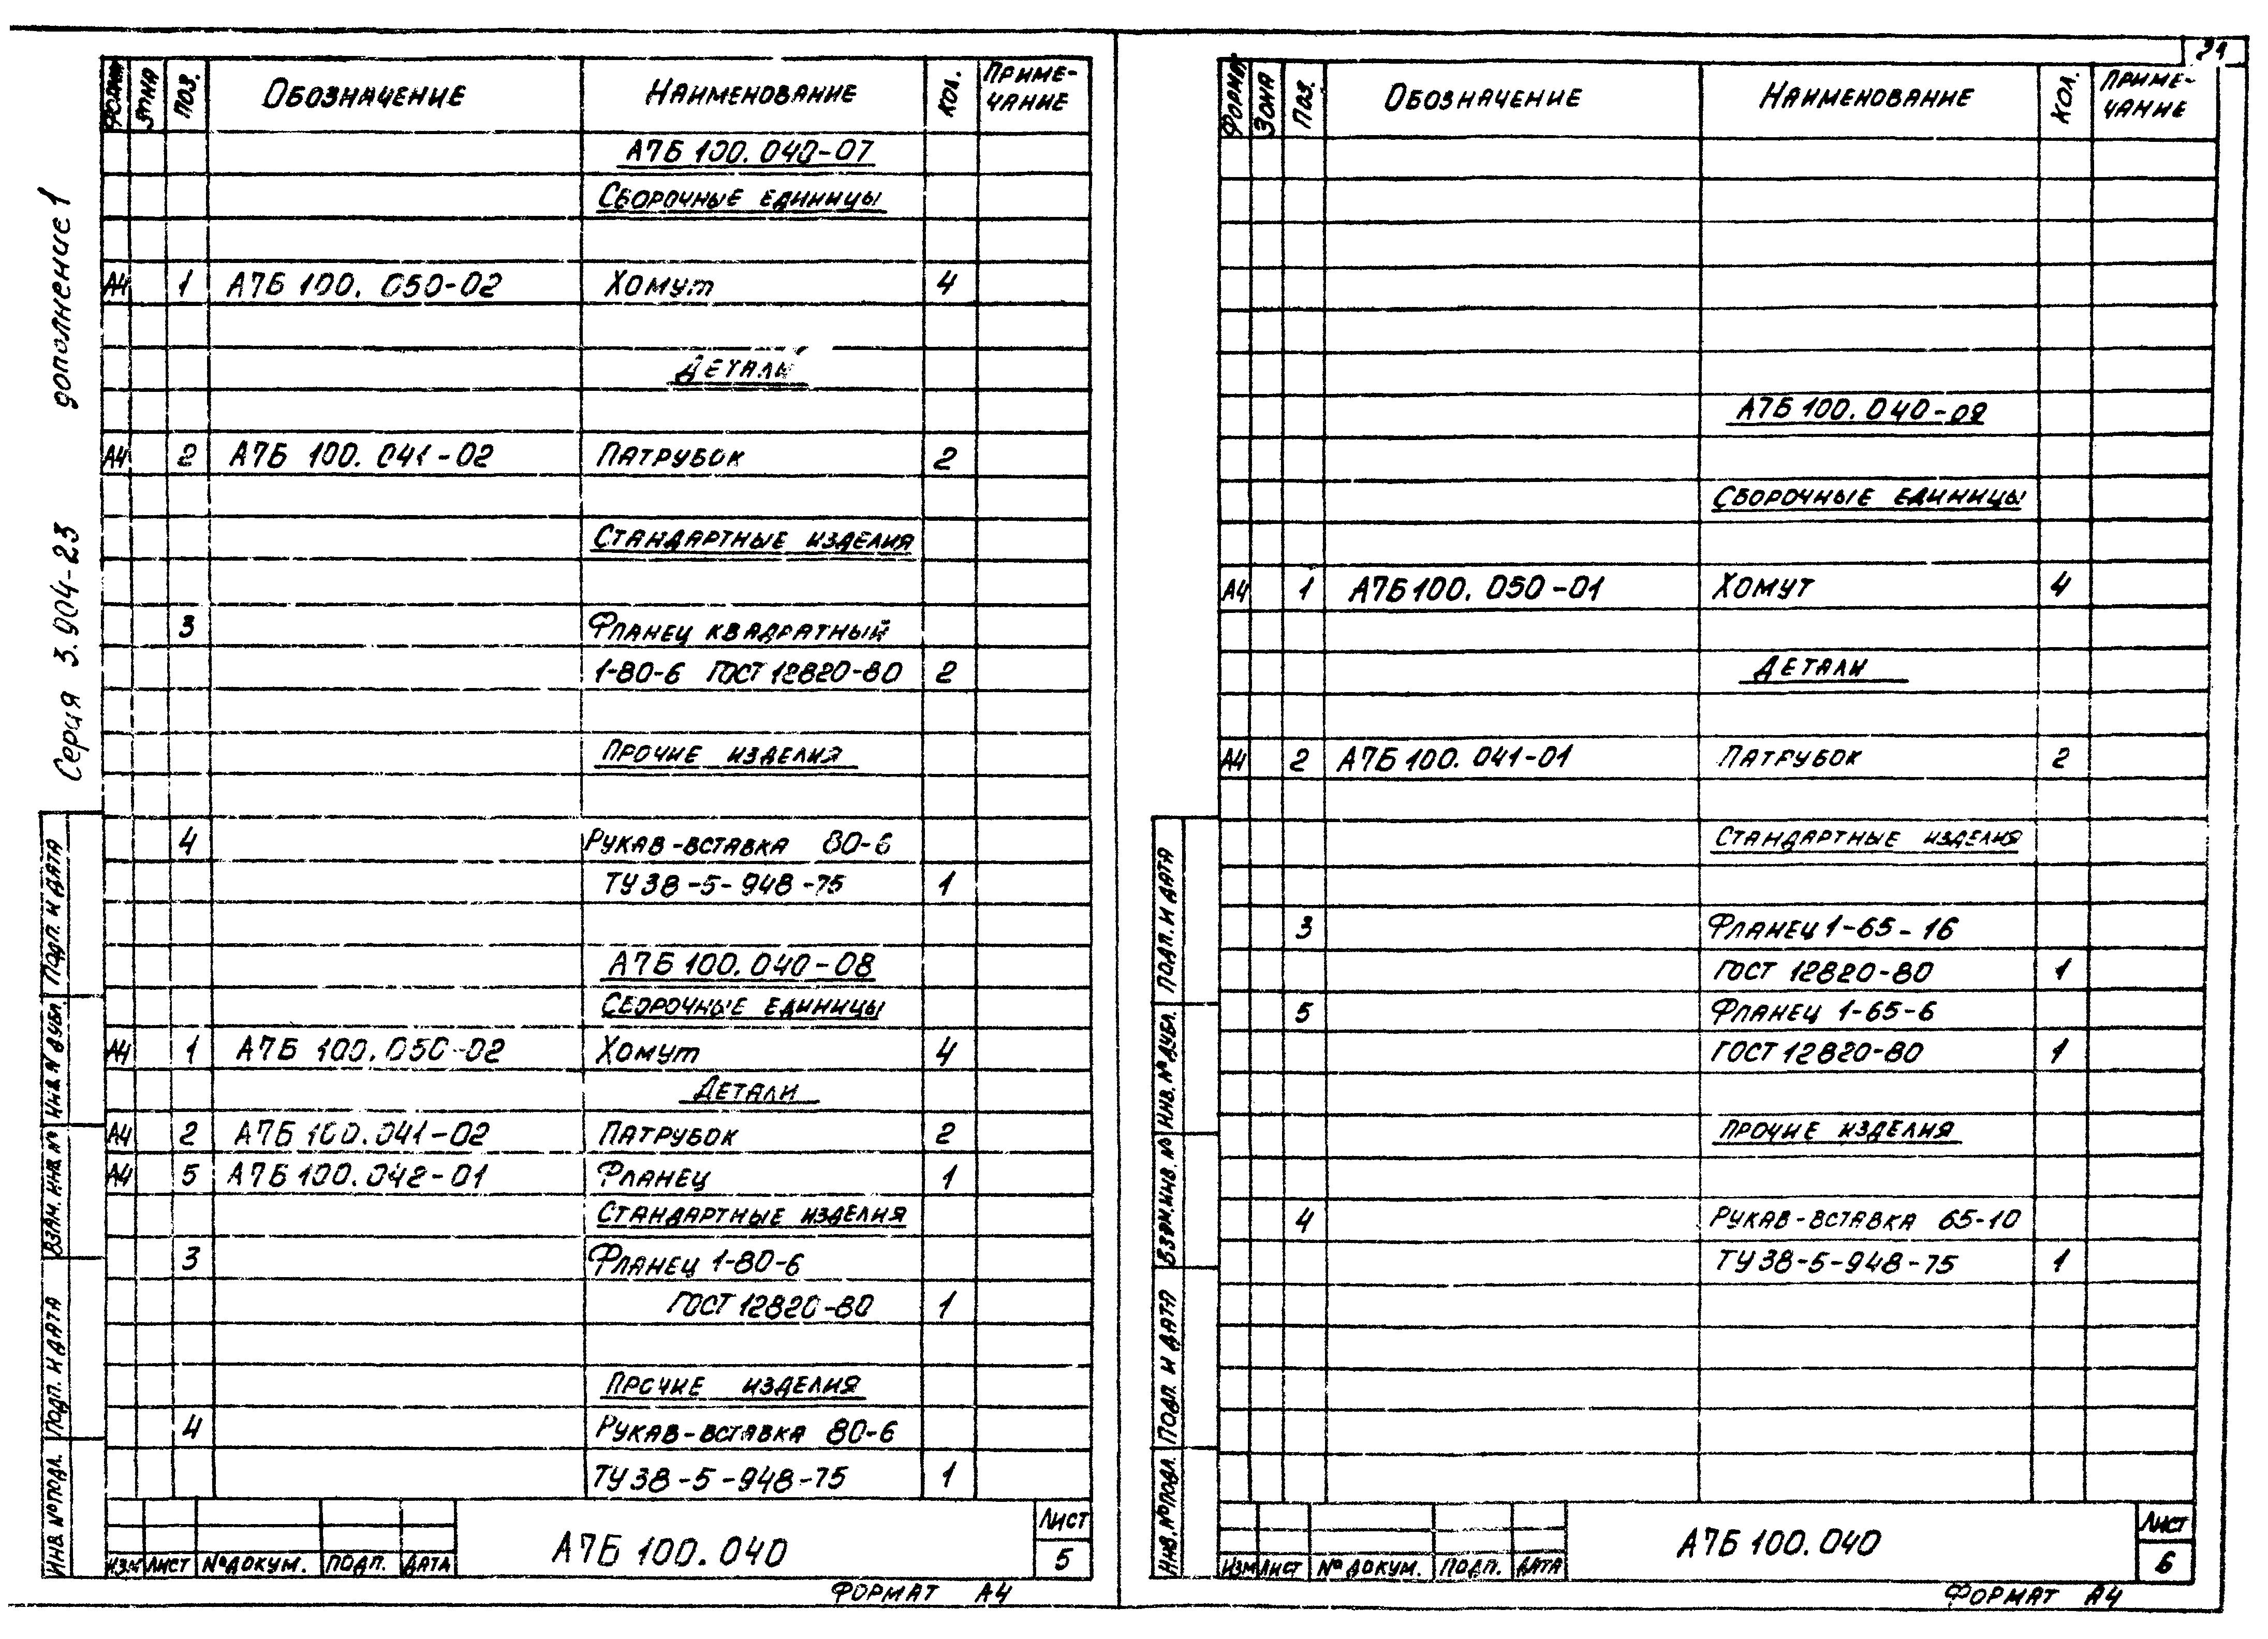 дополнение 1
Серия 3.904-23
Формат Зона Поз. Обозначение Наименование Кол. Приме-
чание
А7Б 100.040-07
Сборочные единицы
А4 1 А7Б 100.050-02 Хомут 4
Детали
А4 2 А7Б 100.041-02 Патрубок 2
Стандартные изделия
3 Фланец квадратный
1-80-6 ГОСТ 12820-80 2
Прочие изделия
4 Рукав-вставка 80-6
ТУ 38-5-948-75 1
А7Б 100.040-08
Сборочные единицы
А4 1 А7Б 100.050-02 Хомут 4
Детали
А4 2 А7Б 100.041-02 Патрубок 2
А4 5 А7Б 100.042-01 Фланец 1
Стандартные изделия
3 Фланец 1-80-6
ГОСТ 12820-80 1
Прочие изделия
4 Рукав-вставка 80-6
ТУ 38-5-948-75 1
Инв. № подл. Подп. и дата Взам. инв. № Инв. № дубл. Подп. и дата
Изм Лист № докум. Подп. Дата
А7Б 100.040
Лист
5
Формат А4
Формат Зона Поз. Обозначение Наименование Кол. Приме-
чание
А7Б 100.040-09
Сборочные единицы
А4 1 А7Б 100.050-01 Хомут 4
Детали
А4 2 А7Б 100.041-01 Патрубок 2
Стандартные изделия
3 Фланец 1-65-16
ГОСТ 12820-80 1
5 Фланец 1-65-6
ГОСТ 12820-80 1
Прочие изделия
4 Рукав-вставка 65-10
ТУ 38-5-948-75 1
Инв. № подл. Подп. и дата Взам. инв. № Инв. № дубл. Подп. и дата
Изм Лист № докум. Подп. Дата
А7Б 100.040
Лист
6
Формат А4